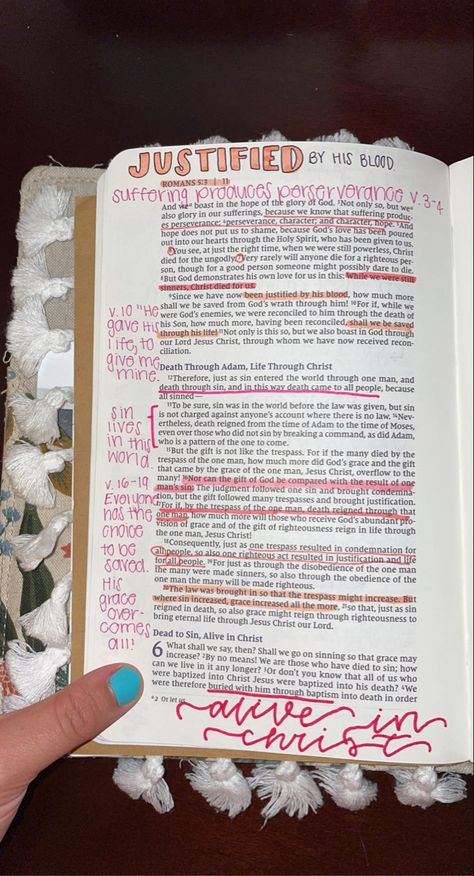 JUSTIFIED BY HIS BLOOD.
ROMANS 5:3 | 11
suffering produces perserverance v.3-4
And we boast in the hope of the glory of God. ³Not only so, but we
also glory in our sufferings, because we know that suffering produc-
es perseverance; ⁴perseverance, character; and character, hope. ⁵And
hope does not put us to shame, because God's love has been poured
out into our hearts through the Holy Spirit, who has been given to us.
⁶You see, at just the right time, when we were still powerless, Christ
died for the ungodly. ⁷Very rarely will anyone die for a righteous per-
son, though for a good person someone might possibly dare to die.
⁸But God demonstrates his own love for us in this: While we were still
sinners, Christ died for us.
⁹Since we have now been justified by his blood, how much more
shall we be saved from God's wrath through him! ¹⁰For if, while we
were God's enemies, we were reconciled to him through the death of
his Son, how much more, having been reconciled, shall we be saved
through his life! ¹¹Not only is this so, but we also boast in God through
our Lord Jesus Christ, through whom we have now received recon-
ciliation.
v.10 "He
gave His
life, to
give me
mine.
Death Through Adam, Life Through Christ
¹²Therefore, just as sin entered the world through one man, and
death through sin, and in this way death came to all people, because
all sinned—
¹³To be sure, sin was in the world before the law was given, but sin
is not charged against anyone's account where there is no law. ¹⁴Nev-
ertheless, death reigned from the time of Adam to the time of Moses,
even over those who did not sin by breaking a command, as did Adam,
who is a pattern of the one to come.
sin
lives
in this
world.
¹⁵But the gift is not like the trespass. For if the many died by the
trespass of the one man, how much more did God's grace and the gift
that came by the grace of the one man, Jesus Christ, overflow to the
many! ¹⁶Nor can the gift of God be compared with the result of one
man's sin: The judgment followed one sin and brought condemna-
tion, but the gift followed many trespasses and brought justification.
¹⁷For if, by the trespass of the one man, death reigned through that
one man, how much more will those who receive God's abundant pro-
vision of grace and of the gift of righteousness reign in life through
the one man, Jesus Christ!
¹⁸Consequently, just as one trespass resulted in condemnation for
all people, so also one righteous act resulted in justification and life
for all people. ¹⁹For just as through the disobedience of the one man
the many were made sinners, so also through the obedience of the
one man the many will be made righteous.
²⁰The law was brought in so that the trespass might increase. But
where sin increased, grace increased all the more, ²¹so that, just as sin
reigned in death, so also grace might reign through righteousness to
bring eternal life through Jesus Christ our Lord.
v. 16-19
Everyone
has the
choice
to be
saved.
His
grace
over-
comes
all!
Dead to Sin, Alive in Christ
6 What shall we say, then? Shall we go on sinning so that grace may
increase? ²By no means! We are those who have died to sin; how
can we live in it any longer? ³Or don't you know that all of us who
were baptized into Christ Jesus were baptized into his death? ⁴We
were therefore buried with him through baptism into death in order
ᵃ2 Or let us
alive in
christ